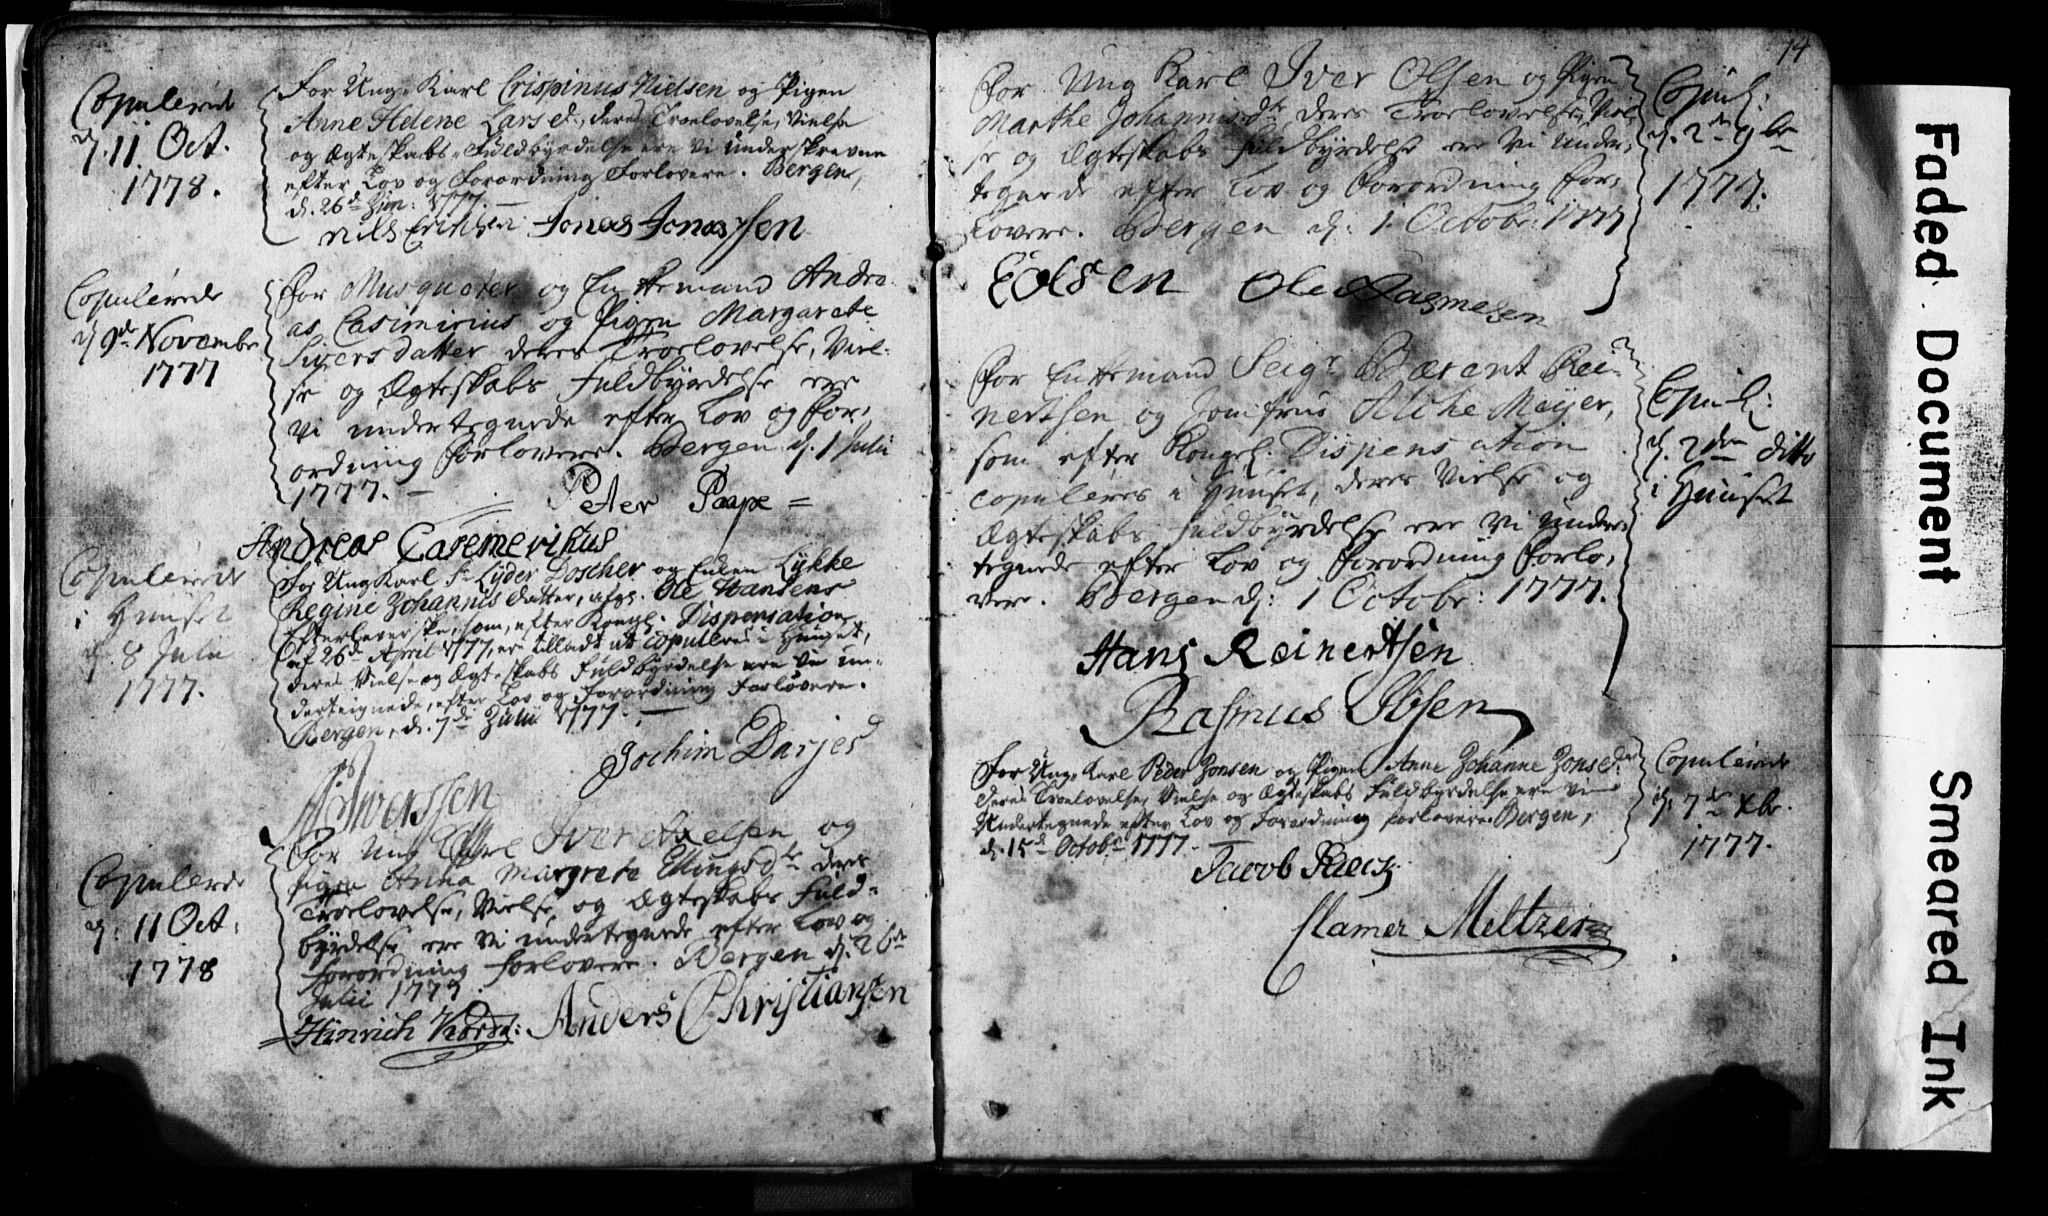 Copulerede
d. 11 Oct.
1778.
For Ung-Karl Crispinus Nielsen og Pigen
Anne Helene Lars d., deres Troelovelse, Vielse
og Ægteskabs-Fuldbyrdelse ere vi underskrevne
efter Lov og Forordning Forlovere. Bergen,
d. 26de 1777.
Nils Erichsen Jonas Jonassen
Copulerede
d 9de Novembr
1777
For Musqueter og Enkemand Andre-
as Casimirius og Pigen Margarete
Siversdatter deres Troelovelse, Viel-
se og Ægteskabs Fuldbyrdelse ere
vi undertegnede efter Lov og For-
ordning Forlovere. Bergen d. 1 Julii
1777.
Peter Paape
Andreas Casemerihus
Copulerede
i Huuset
d. 8 Julii
1777.
For Ung Karl Sr Lyder Döscher og Enken Lykke
Regine Johannis datter, afg. Ole Hansens
Efterleverske, som, efter Kongl. Dispensation
af 26de April 1777, er tilladt at copuleres i Huuset,
deres Vielse og Ægteskabs Fuldbyrdelse ere vi un-
derteignede, efter Lov og Forordning Forlovere.
Bergen, d. 7de Julii 1777.
Jochim Darjes
Copulerede
d: 11 Oct:
1778
For Ung Karl Iver Nielsen og
Pigen Anna Margrete Ellingsdtr deres
Troelovelse, Vielse og Ægteskabs Fuld-
byrdelse ere vi undertegnede efter Lov og
Forordning Forlovere. Bergen d. 26de
Julii 1777.
Hinrich Anders Christiansen
14
For Ung Karl Iver Olsen og Pigen
Marthe Johannis dtr deres Troelovelse, Viel-
se og Ægteskabs Fuldbyrdelse ere vi under-
tegnede efter Lov og Forordning For-
lovere. Bergen d: 1 Octobr: 1777
Copul:
d. 2den 9br
1777.
Eolsen Ole Rasmesen
For Enkemand Seigr Bærent Rei-
nertsen og Jomfrue Alche Meyer,
som efter Kongel. Dispensation
copuleres i Huuset, deres Vielse og
Ægteskabs Fuldbyrdelse ere vi under-
tegnede efter Lov og Forordning Forlo-
vere. Bergen d: 1 Octobr: 1777.
Copul:
d. 2den ditto
i Huuset
Hans Reinertsen
Rasmus Ibsen
For Ung-Karl Peder Jonsen og Pigen Anne Johanne Jonsd.
deres Troelovelse, Vielse og Ægteskabs Fuldbyrdelse ere vi
Undertegnede efter Lov og Forordning Forlovere. Bergen,
d. 15de Octobr 1777.
Copulerede
d. 7de Xbr.
1777.
Jacob
Clamer Meltzer
Faded Document
Smeared Ink